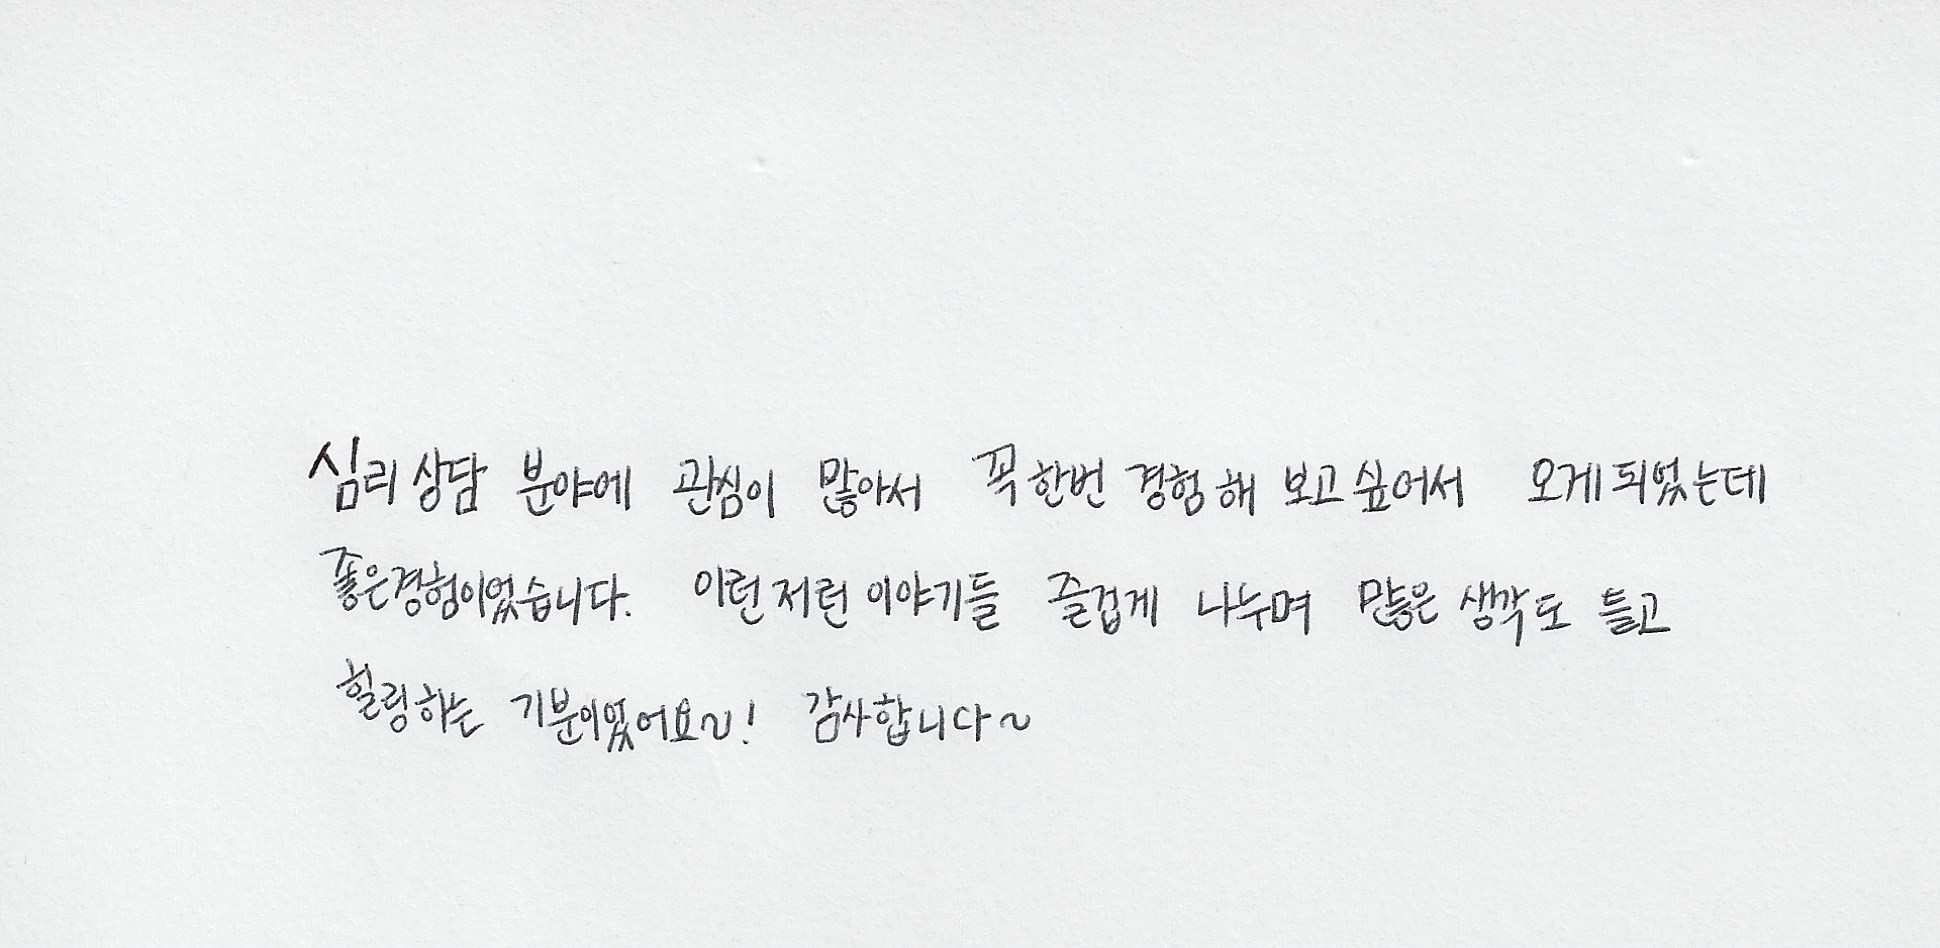 심리상담 분야에 관심이 많아서 꼭 한번 경험해 보고싶어서 오게되었는데
좋은경험이었습니다. 이런저런 이야기들 즐겁게 나누며 많은 생각도 들고
힐링하는 기분이었어요~! 감사합니다~